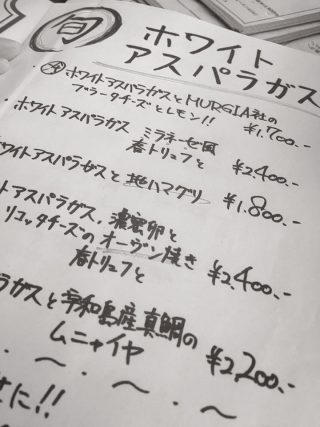 旬 ホワイト
アスパラガス
ホワイトアスパラガスとMURGIA社の
ブラータチーズとレモン!! ¥1,700.-
ホワイトアスパラガス ミラネーゼ風
春トリュフと ¥2,400.-
ワイトアスパラガスと地ハマグリ ¥1,800.-
トアスパラガス、濃蜜卵と
リコッタチーズのオーヴン焼き
春トリュフと ¥2,400.-
ラガスと宇和島産真鯛の
ムニャイヤ ¥2,200.-
せに!!